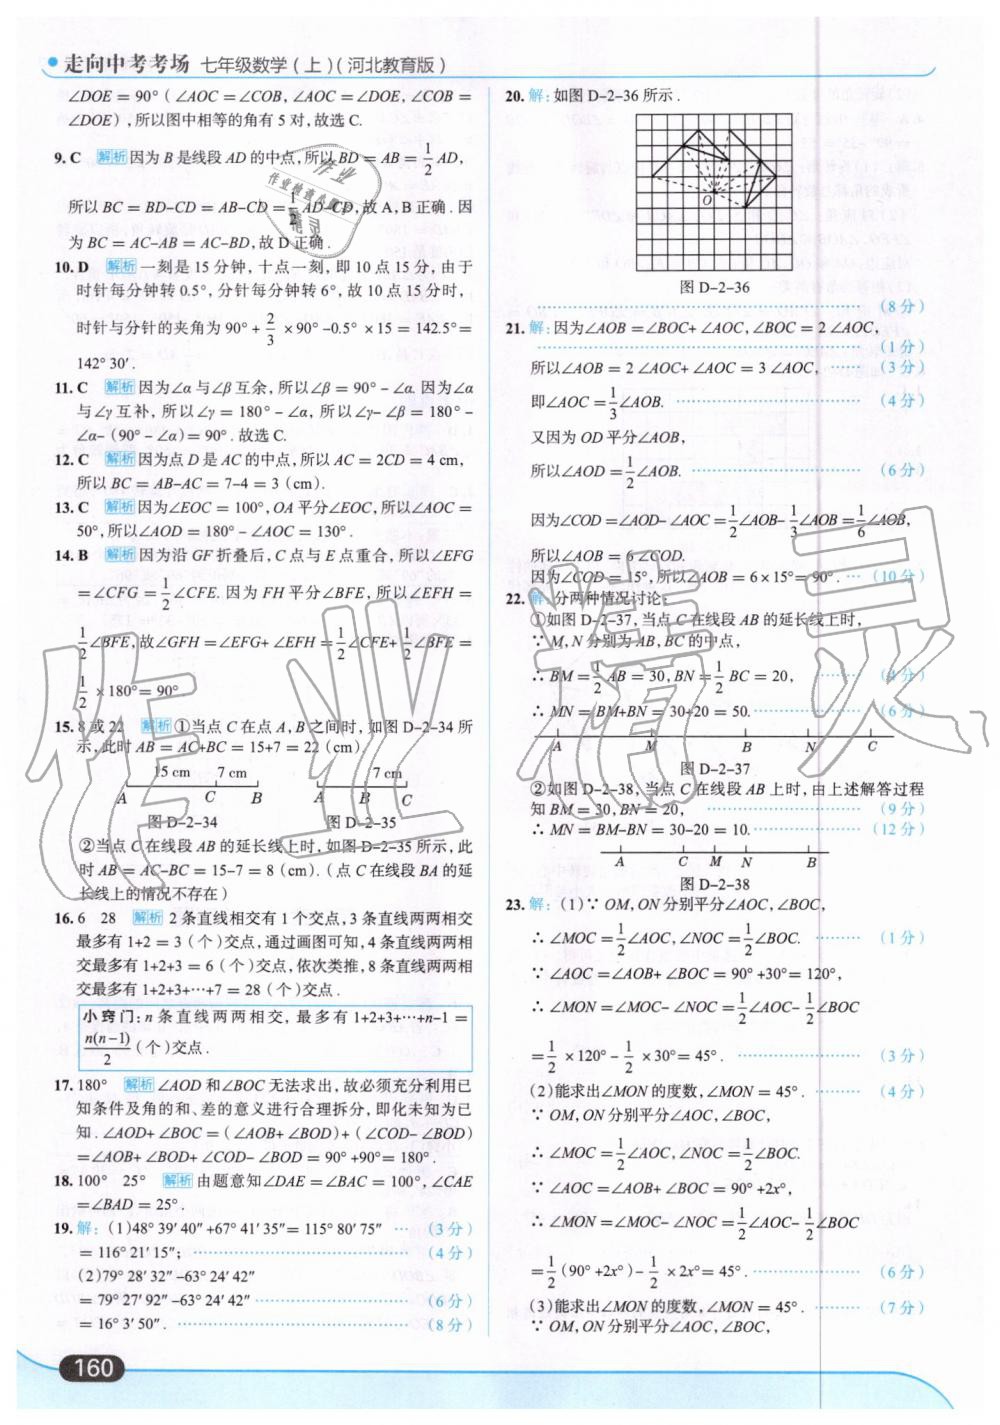 走向中考考场 七年级数学(上)(河北教育版)
∠DOE = 90°(∠AOC = ∠COB, ∠AOC = ∠DOE, ∠COB =
∠DOE),所以图中相等的角有 5 对,故选 C.
9. C 解析 因为 B 是线段 AD 的中点,所以 BD = AB = 1/2 AD,
所以 BC = BD-CD = AB-CD = 1/2 AD-CD,故 A,B 正确. 因
为 BC = AC-AB = AC-BD,故 D 正确.
10. D 解析 一刻是 15 分钟,十点一刻,即 10 点 15 分,由于
时针每分钟转 0.5°,分针每分钟转 6°,故 10 点 15 分时,
时针与分针的夹角为 90° + 2/3 ×90° -0.5° ×15 = 142.5° =
142° 30′.
11. C 解析 因为∠α 与∠β 互余,所以∠β = 90° - ∠α. 因为∠α
与∠γ 互补,所以∠γ = 180° - ∠α,所以∠γ- ∠β = 180° -
∠α-(90° - ∠α) = 90°. 故选 C.
12. C 解析 因为点 D 是 AC 的中点,所以 AC = 2CD = 4 cm,
所以 BC = AB-AC = 7-4 = 3 (cm).
13. C 解析 因为∠EOC = 100°,OA 平分∠EOC,所以∠AOC =
50°,所以∠AOD = 180° - ∠AOC = 130°.
14. B 解析 因为沿 GF 折叠后,C 点与 E 点重合,所以∠EFG
= ∠CFG = 1/2 ∠CFE. 因为 FH 平分∠BFE,所以∠EFH =
1/2 ∠BFE,故∠GFH = ∠EFG+ ∠EFH = 1/2 ∠CFE+ 1/2 ∠BFE =
1/2 ×180° = 90°
15. 8 或 22 解析 ①当点 C 在点 A,B 之间时,如图 D-2-34 所
示,此时 AB = AC+BC = 15+7 = 22 (cm).
15 cm 7 cm 7 cm
A C B A B C
图 D-2-34 图 D-2-35
②当点 C 在线段 AB 的延长线上时,如图 D-2-35 所示,此
时 AB = AC-BC = 15-7 = 8 (cm).(点 C 在线段 BA 的延
长线上的情况不存在)
16. 6 28 解析 2 条直线相交有 1 个交点,3 条直线两两相交
最多有 1+2 = 3(个)交点,通过画图可知,4 条直线两两相
交最多有 1+2+3 = 6(个)交点,依次类推,8 条直线两两相
交最多有 1+2+3+…+7 = 28(个)交点.
小窍门:n 条直线两两相交,最多有 1+2+3+…+n-1 =
n(n-1)/2 (个)交点.
17. 180° 解析 ∠AOD 和∠BOC 无法求出,故必须充分利用已
知条件及角的和、差的意义进行合理拆分,即化未知为已
知. ∠AOD+ ∠BOC = (∠AOB+ ∠BOD) + (∠COD- ∠BOD)
= ∠AOB+ ∠BOD+ ∠COD- ∠BOD = 90° +90° = 180°.
18. 100° 25° 解析 由题意知∠DAE = ∠BAC = 100°,∠CAE
= ∠BAD = 25°.
19. 解:(1)48° 39′ 40″ +67° 41′ 35″ = 115° 80′ 75″ … (3 分)
= 116° 21′ 15″; …………… (4 分)
(2)79° 28′ 32″ -63° 24′ 42″
= 79° 27′ 92″ -63° 24′ 42″ …………… (6 分)
= 16° 3′ 50″. …………… (8 分)
20. 解:如图 D-2-36 所示.
O
图 D-2-36
…………… (8 分)
21. 解:因为∠AOB = ∠BOC+ ∠AOC,∠BOC = 2 ∠AOC,
…………… (1 分)
所以∠AOB = 2 ∠AOC+ ∠AOC = 3 ∠AOC, …… (3 分)
即∠AOC = 1/3 ∠AOB. …………… (4 分)
又因为 OD 平分∠AOB,
所以∠AOD = 1/2 ∠AOB. …………… (6 分)
因为∠COD = ∠AOD- ∠AOC = 1/2 ∠AOB- 1/3 ∠AOB = 1/6 ∠AOB,
所以∠AOB = 6 ∠COD.
因为∠COD = 15°,所以∠AOB = 6×15° = 90°. … (10 分)
22. 解:分两种情况讨论:
①如图 D-2-37,当点 C 在线段 AB 的延长线上时,
∵ M,N 分别为 AB,BC 的中点,
∴ BM = 1/2 AB = 30,BN = 1/2 BC = 20, …… (4 分)
∴ MN = BM+BN = 30+20 = 50. …………… (6 分)
A M B N C
图 D-2-37
②如图 D-2-38,当点 C 在线段 AB 上时,由上述解答过程
知 BM = 30,BN = 20, …………… (9 分)
∴ MN = BM-BN = 30-20 = 10. …………… (12 分)
A C M N B
图 D-2-38
23. 解:(1)∵ OM,ON 分别平分∠AOC,∠BOC,
∴ ∠MOC = 1/2 ∠AOC,∠NOC = 1/2 ∠BOC. ……… (1 分)
∵ ∠AOC = ∠AOB+ ∠BOC = 90° +30° = 120°,
∴ ∠MON = ∠MOC- ∠NOC = 1/2 ∠AOC- 1/2 ∠BOC
= 1/2 ×120° - 1/2 ×30° = 45°. …………… (3 分)
(2)能求出∠MON 的度数,∠MON = 45°. ……… (4 分)
∵ OM,ON 分别平分∠AOC,∠BOC,
∴ ∠MOC = 1/2 ∠AOC,∠NOC = 1/2 ∠BOC.
∵ ∠AOC = ∠AOB+ ∠BOC = 90° +2x°,
∴ ∠MON = ∠MOC- ∠NOC = 1/2 ∠AOC- 1/2 ∠BOC
= 1/2 (90° +2x°) - 1/2 ×2x° = 45°. …………… (6 分)
(3)能求出∠MON 的度数,∠MON = 45°. ……… (7 分)
∵ OM,ON 分别平分∠AOC,∠BOC,
160
作业精灵